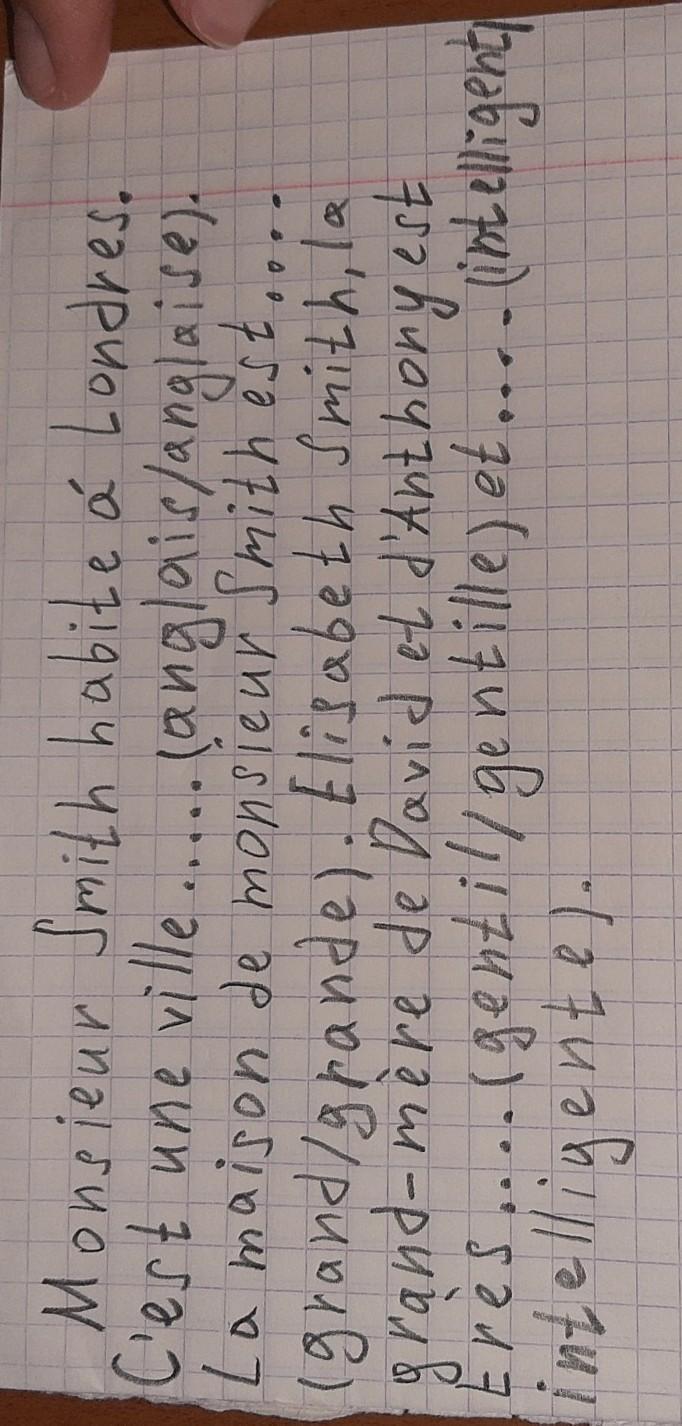 Monsieur Smith habite á Londres.
C'est une ville......(anglais/anglaise).
La maison de monsieur Smith est.....
(grand/grande). Elisabeth Smith, la
grand-mère de David et d'Anthony est
très.....(gentil/gentille) et.....(intelligent/
intelligente).